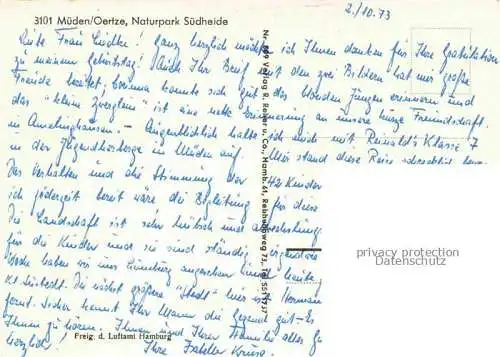 3101 Müden/Oertze, Naturpark Südheide
2./10.73
Liebe Frau Lüdtke! Ganz herzlich möchte ich Ihnen danken für Ihre Gratulation
zu meinem Geburtstag! Auch Ihr Brief mit den zwei Bildern hat mir große
Freude bereitet; konnte sich gut des blonden Jungen erinnern und
das "kleine Zwerglein" ist eine nette Erinnerung an unsere kurze Freundschaft
in Amelinghausen. - Augenblicklich halte ich mich mit Reinald's Klasse 7
in der Jugendherberge in Müden auf. Mir stand diese Reise
Das Verhalten und die Stimmung der 42 Kinder
ich jederzeit bereit wäre die Begleitung für diese
Die Landschaft ist sehr hübsch und
für die Kinder und sie sind ständig irgendwo
haben wir uns Lüneburg angesehen und heute
ist Südheide. Die nächst größere "Stadt" hier ist Herman
Sicher kennt Ihr Mann die Gegend gut - Es
Ihnen zu hören. Ihnen und Ihrer Familie alles Gu
herzlichst! Ihre
Freig. d. Luftamt Hamburg
Verlag R. Reiher u. Co., Hamb. 61,
privacy protection
Datenschutz